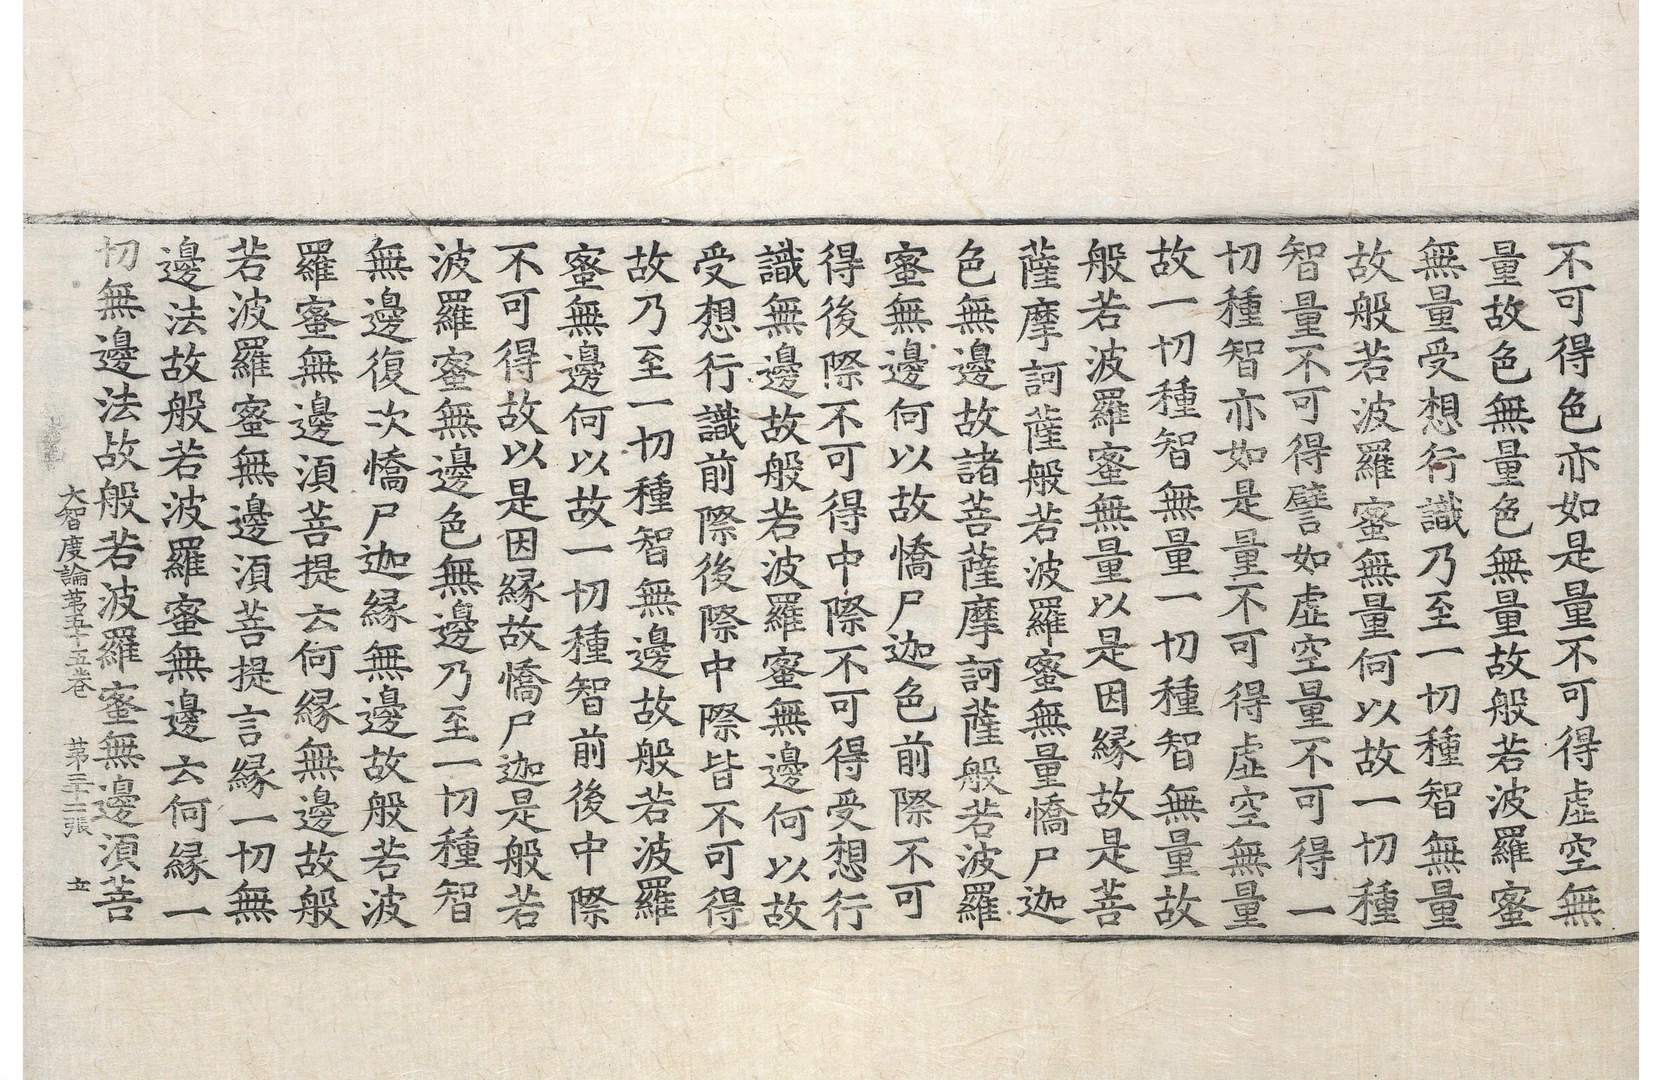 不可得色亦如是量不可得虛空無
量故色無量色無量故般若波羅蜜
無量受想行識乃至一切種智無量
故般若波羅蜜無量何以故一切種
智量不可得譬如虛空量不可得一
切種智亦如是量不可得虛空無量
故一切種智無量一切種智無量故
般若波羅蜜無量以是因緣故是菩
薩摩訶薩般若波羅蜜無量憍尸迦
色無邊故諸菩薩摩訶薩般若波羅
蜜無邊何以故憍尸迦色前際不可
得後際不可得中際不可得受想行
識無邊故般若波羅蜜無邊何以故
受想行識前際後際中際皆不可得
故乃至一切種智無邊故般若波羅
蜜無邊何以故一切種智前後中際
不可得故以是因緣故憍尸迦是般若
波羅蜜無邊色無邊乃至一切種智
無邊復次憍尸迦緣無邊故般若波
羅蜜無邊須菩提云何緣無邊故般
若波羅蜜無邊須菩提言緣一切無
邊法故般若波羅蜜無邊云何緣一
切無邊法故般若波羅蜜無邊須菩
大智度論第五十五卷 第三十二張 立